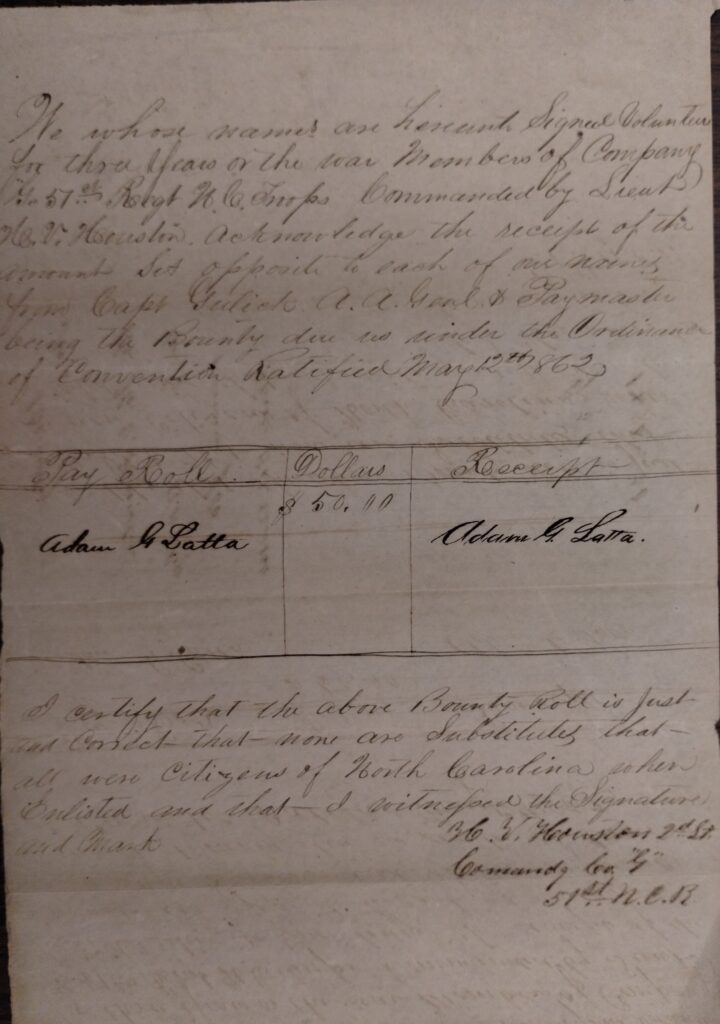 We whose names are hereunto Signed Volunteer
for three Years or the war Members of Company
"G" 51st Regt N. C. Troops Commanded by Lieut
H. V. Houston. Acknowledge the receipt of the
amount Set opposite to each of our names
from Capt Gulick A. A. Genl & Paymaster
being the Bounty due us under the Ordinance
of Convention Ratified May 12th 1862
Pay Roll Dollars Receipt
$ 50.00
Adam G Latta Adam G. Latta.
I certify that the above Bounty Roll is Just
and Correct that none are Substitutes, that
all were Citizens of North Carolina when
Enlisted and that I witnessed the Signature
and Mark
H. V. Houston 2nd Lt.
Comandg Co, "G"
51st N. C. R